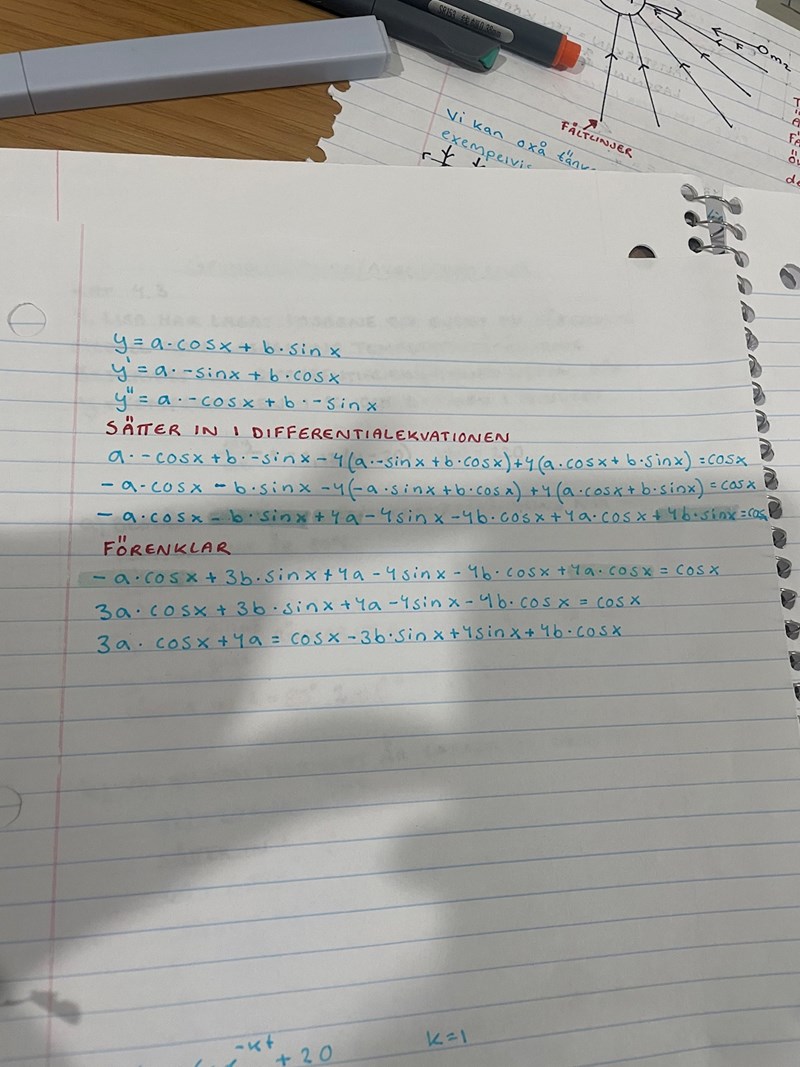 FÄLTLINJER
m₂
F
Vi kan oxå
y = a·cosx + b·sinx
y' = a·-sinx + b·cosx
y'' = a·-cosx + b·-sinx
SÄTTER IN I DIFFERENTIALEKVATIONEN
a·-cosx + b·-sinx - 4(a·-sinx + b·cosx) + 4(a·cosx + b·sinx) = cosx
-a·cosx - b·sinx - 4(-a·sinx + b·cosx) + 4(a·cosx + b·sinx) = cosx
-a·cosx - b·sinx + 4a - 4sinx - 4b·cosx + 4a·cosx + 4b·sinx = cos
FÖRENKLAR
-a·cosx + 3b·sinx + 4a - 4sinx - 4b·cosx + 4a·cosx = cosx
3a·cosx + 3b·sinx + 4a - 4sinx - 4b·cosx = cosx
3a·cosx + 4a = cosx - 3b·sinx + 4sinx + 4b·cosx
-kt + 20 k=1